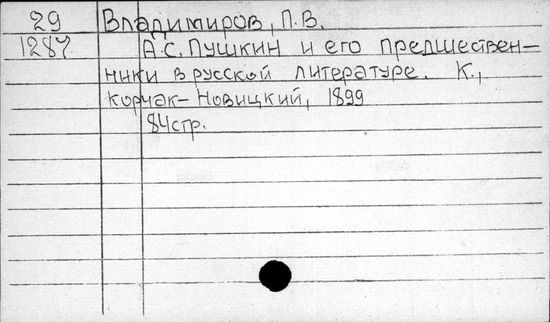 29 Владимиров, П.В.
1287 А.С. Пушкин и его предшествен-
ники в русской литературе. К.,
Корчак-Новицкий, 1899
84стр.